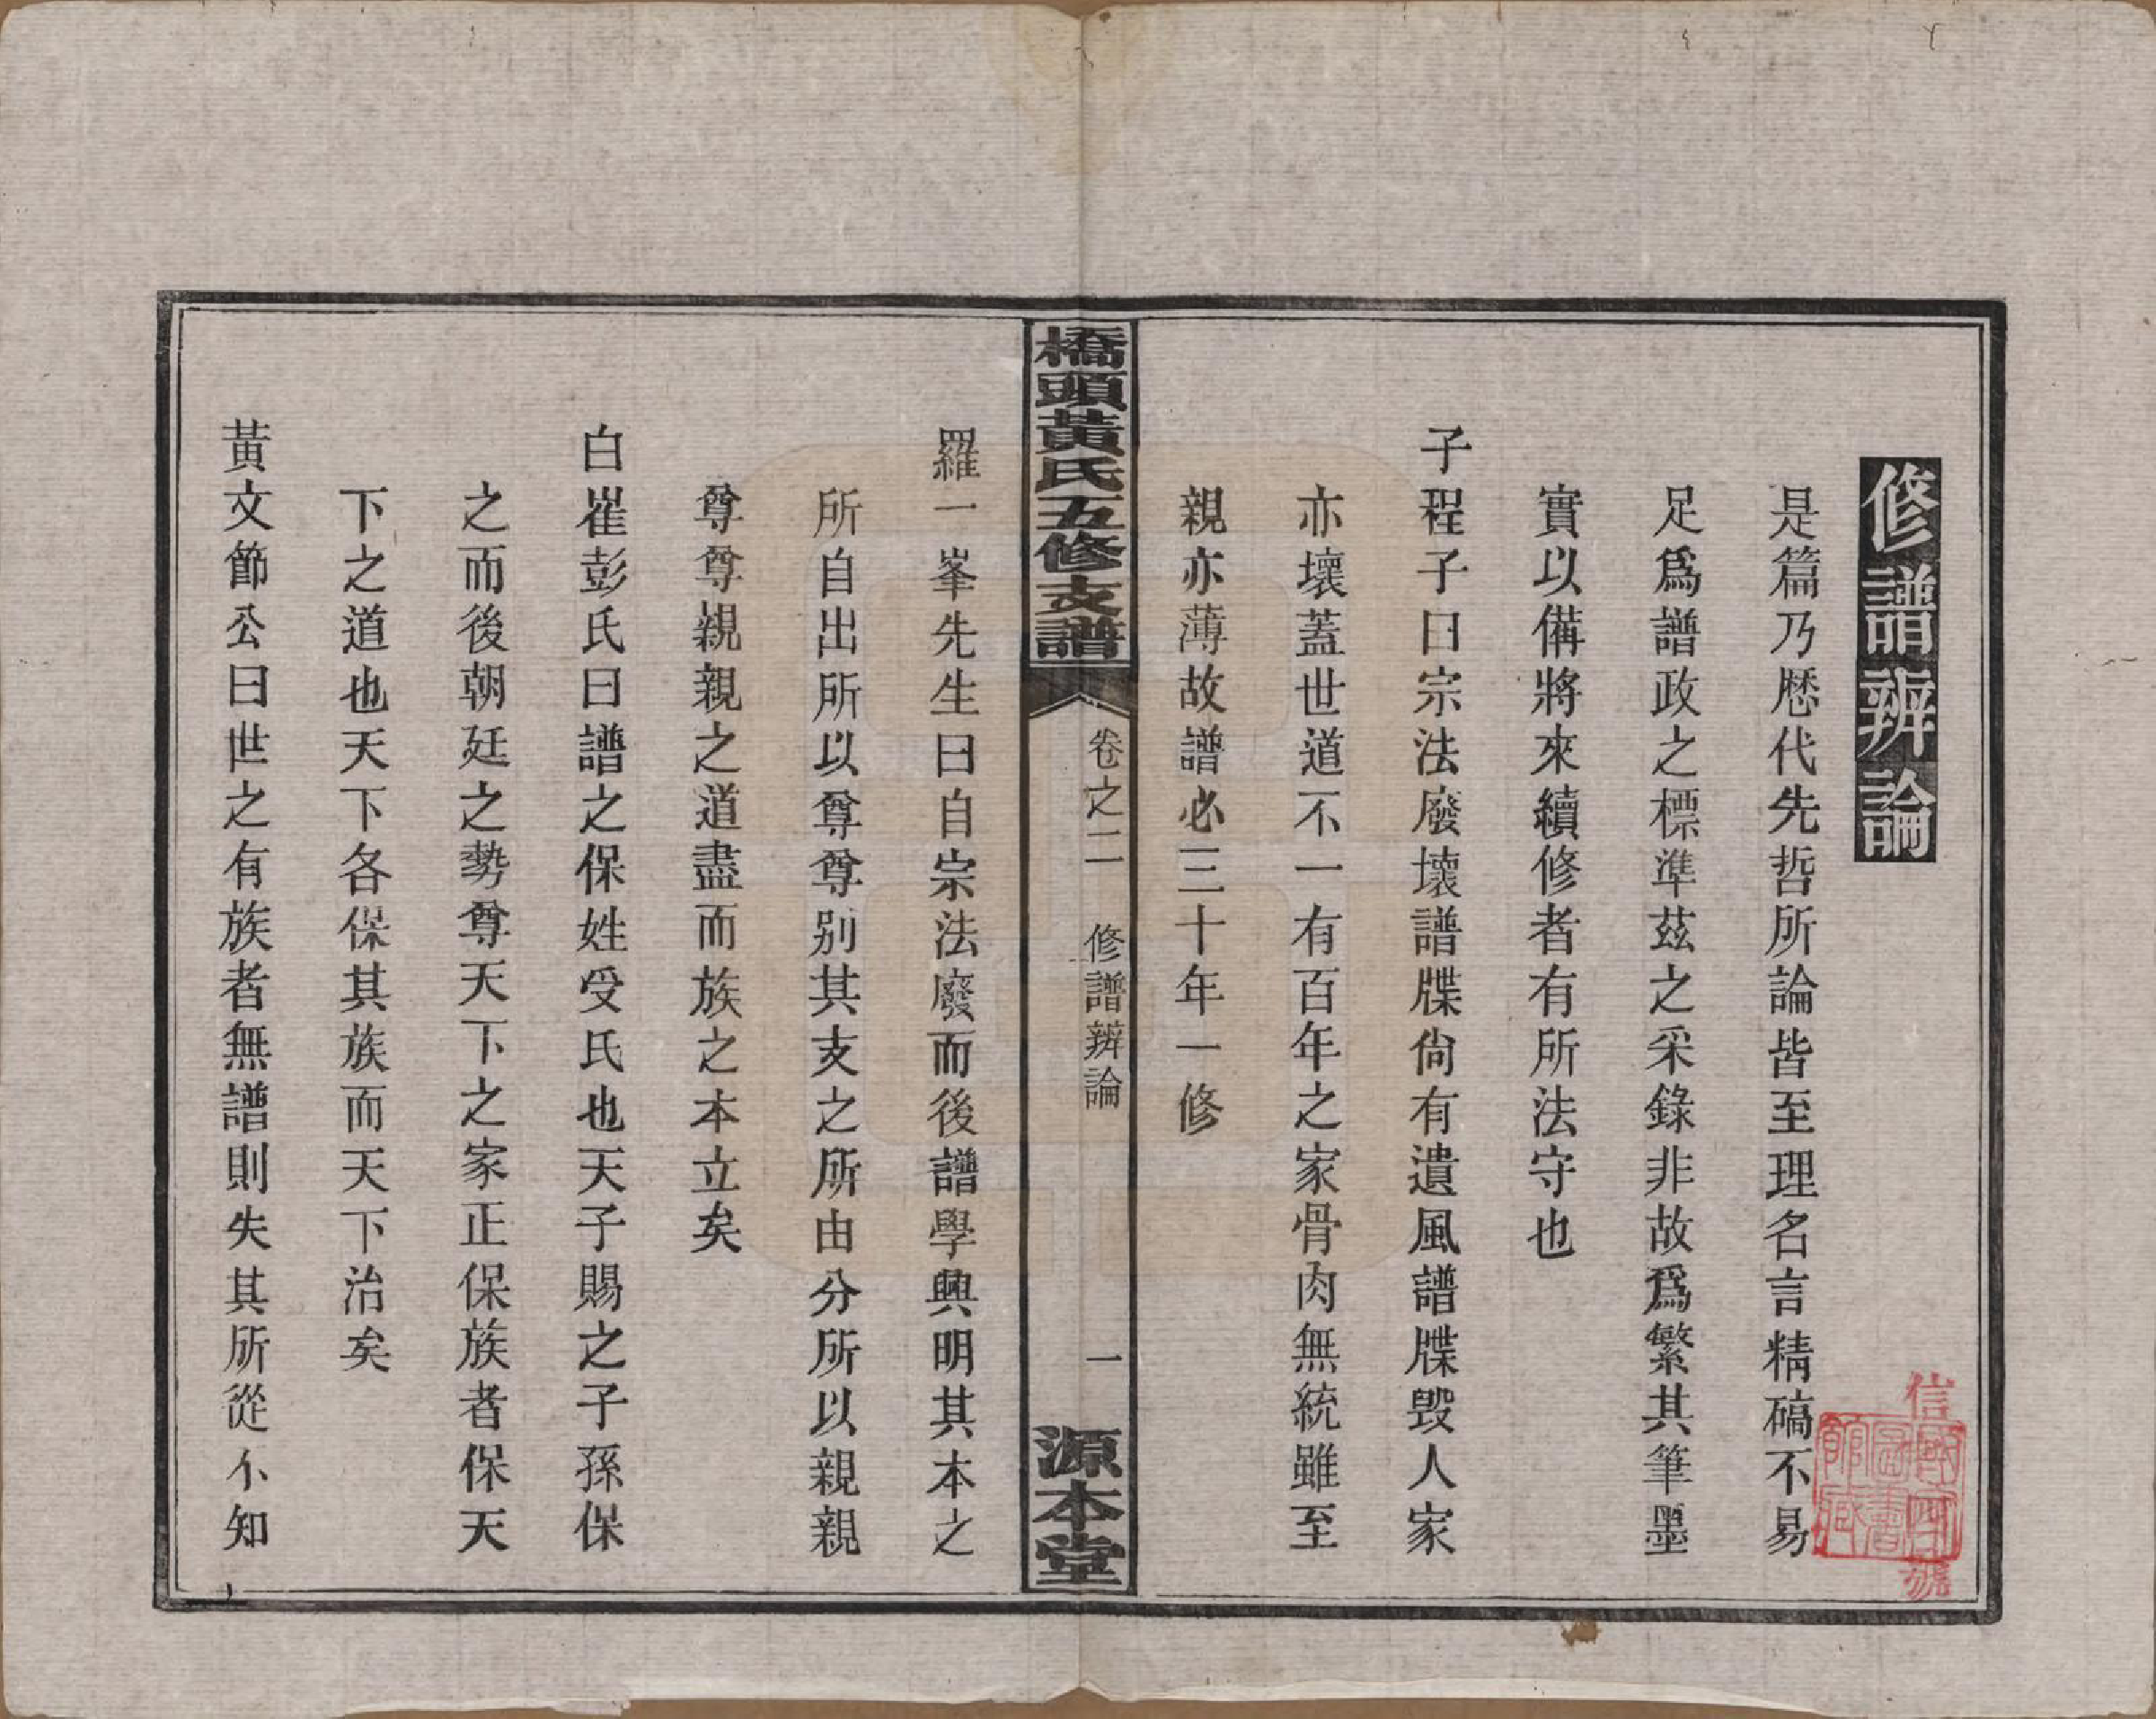 修譜辨論
是篇乃歷代先哲所論皆至理名言精碻不易
足爲譜政之標準茲之采錄非故爲繁其筆墨
實以備將來續修者有所法守也
子程子曰宗法廢壞譜牒尙有遺風譜牒毁人家
亦壞蓋世道不一有百年之家骨肉無統雖至
親亦薄故譜必三十年一修
橋頭黃氏五修支譜
卷之二
修譜辨論
一
源本堂
羅一峯先生曰自宗法廢而後譜學興明其本之
所自出所以尊尊別其支之所由分所以親親
尊尊親親之道盡而族之本立矣
白崔彭氏曰譜之保姓受氏也天子賜之子孫保
之而後朝廷之勢尊天下之家正保族者保天
下之道也天下各保其族而天下治矣
黃文節公曰世之有族者無譜則失其所從不知
信
國家圖書館藏
號